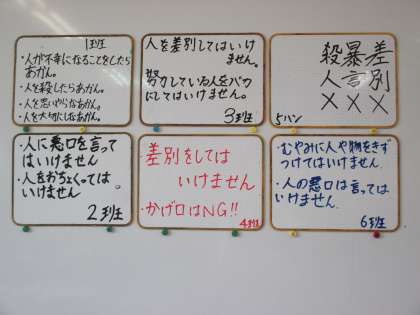 1班
・人が不幸になることをしたら
あかん。
・人を殺したらあかん。
・人を思いやらなあかん。
・人を大切にしなあかん。
人を差別してはいけ
ません。
努力している人をバカ
にしてはいけません。
3班
差別
暴言
殺人
×××
5ハン
・人に悪口を言って
はいけません
・人をおちょくっては
いけません。
2班
・差別をしては
いけません
・かげ口はNG!!
4班
・むやみに人や物をきず
つけてはいけません。
・人の悪口は言っては
いけません。
6班